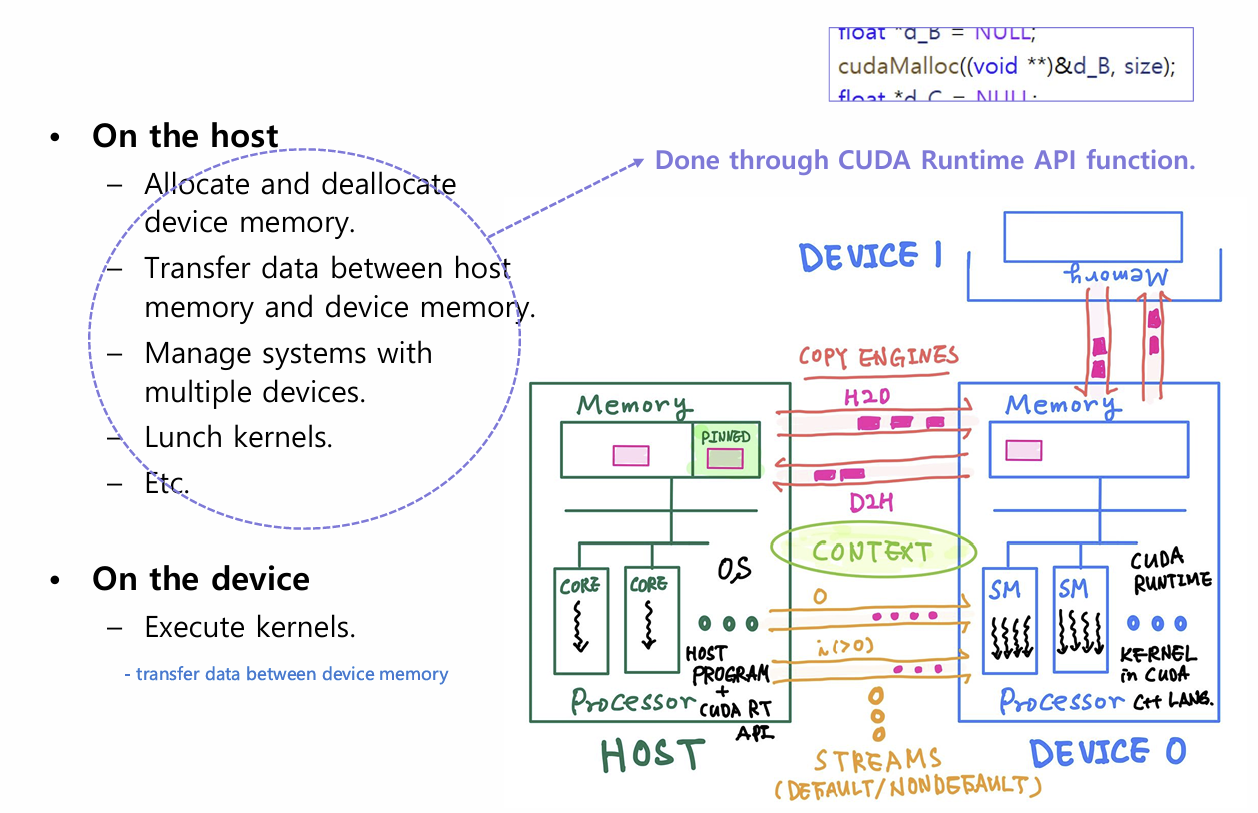 float *d_B = NULL;
cudaMalloc((void **)&d_B, size);
float *d_C = NULL;
• On the host
– Allocate and deallocate
device memory.
– Transfer data between host
memory and device memory.
– Manage systems with
multiple devices.
– Lunch kernels.
– Etc.
Done through CUDA Runtime API function.
• On the device
– Execute kernels.
- transfer data between device memory
DEVICE 1
Memory
COPY ENGINES
H2D
D2H
Memory
PINNED
CORE
CORE
OS
HOST
PROGRAM
+
CUDA RT
API
Processor
HOST
CONTEXT
0
i(>0)
STREAMS
(DEFAULT/NONDEFAULT)
Memory
SM
SM
CUDA
RUNTIME
KERNEL
in CUDA
C++ LANG.
Processor
DEVICE 0